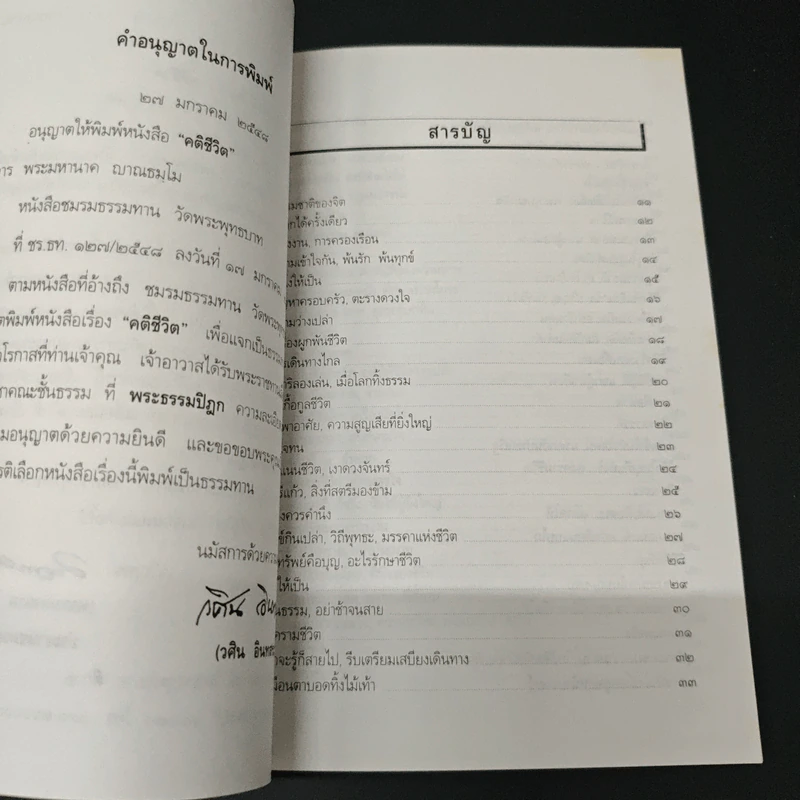 คำอนุญาตในการพิมพ์
๒๗ มกราคม ๒๕๔๘
อนุญาตให้พิมพ์หนังสือ “คติชีวิต”
พระมหานาค ญาณธมฺโม
หนังสือชมรมธรรมทาน วัดพระพุทธบาท
ที่ ชร.ธท. ๑๒๗/๒๕๔๘ ลงวันที่ ๑๗ มกราคม
ตามหนังสือที่อ้างถึง ชมรมธรรมทาน
พิมพ์หนังสือเรื่อง “คติชีวิต” เพื่อแจกเป็น
โรกาสที่ท่านเจ้าคุณ เจ้าอาวาสได้รับ
คณะชั้นธรรม ที่ พระธรรมปิฎก
มอนุญาตด้วยความยินดี และขอขอบ
รติเลือกหนังสือเรื่องนี้พิมพ์เป็นธรรมทาน
นมัสการด้วย
วศิน
(วศิน
สารบัญ
มชาติของจิต ๑๑
กได้ครั้งเดียว ๑๒
งงาน, การครองเรือน ๑๓
ามเข้าใจกัน, พ้นรัก พ้นทุกข์ ๑๔
ให้เป็น ๑๕
หาครอบครัว, ตะรางดวงใจ ๑๖
มว่างเปล่า ๑๗
องผูกพันชีวิต ๑๘
เดินทางไกล ๑๙
ริลองเล่น, เมื่อโลกทิ้งธรรม ๒๐
กื้อกูลชีวิต ๒๑
พาอาศัย, ความสูญเสียที่ยิ่งใหญ่ ๒๒
จทน ๒๓
แนนชีวิต, เงาดวงจันทร์ ๒๔
รีแก้ว, สิ่งที่สตรีมองข้าม ๒๕
งควรคำนึง ๒๖
ข์กินเปล่า, วิถีพุทธะ, มรรคาแห่งชีวิต ๒๗
ทรัพย์คือบุญ, อะไรรักษาชีวิต ๒๘
ให้เป็น ๒๙
นธรรม, อย่าช้าจนสาย ๓๐
ครามชีวิต ๓๑
าจะรู้ก็สายไป, รีบเตรียมเสบียงเดินทาง ๓๒
มือนตาบอดทิ้งไม้เท้า ๓๓